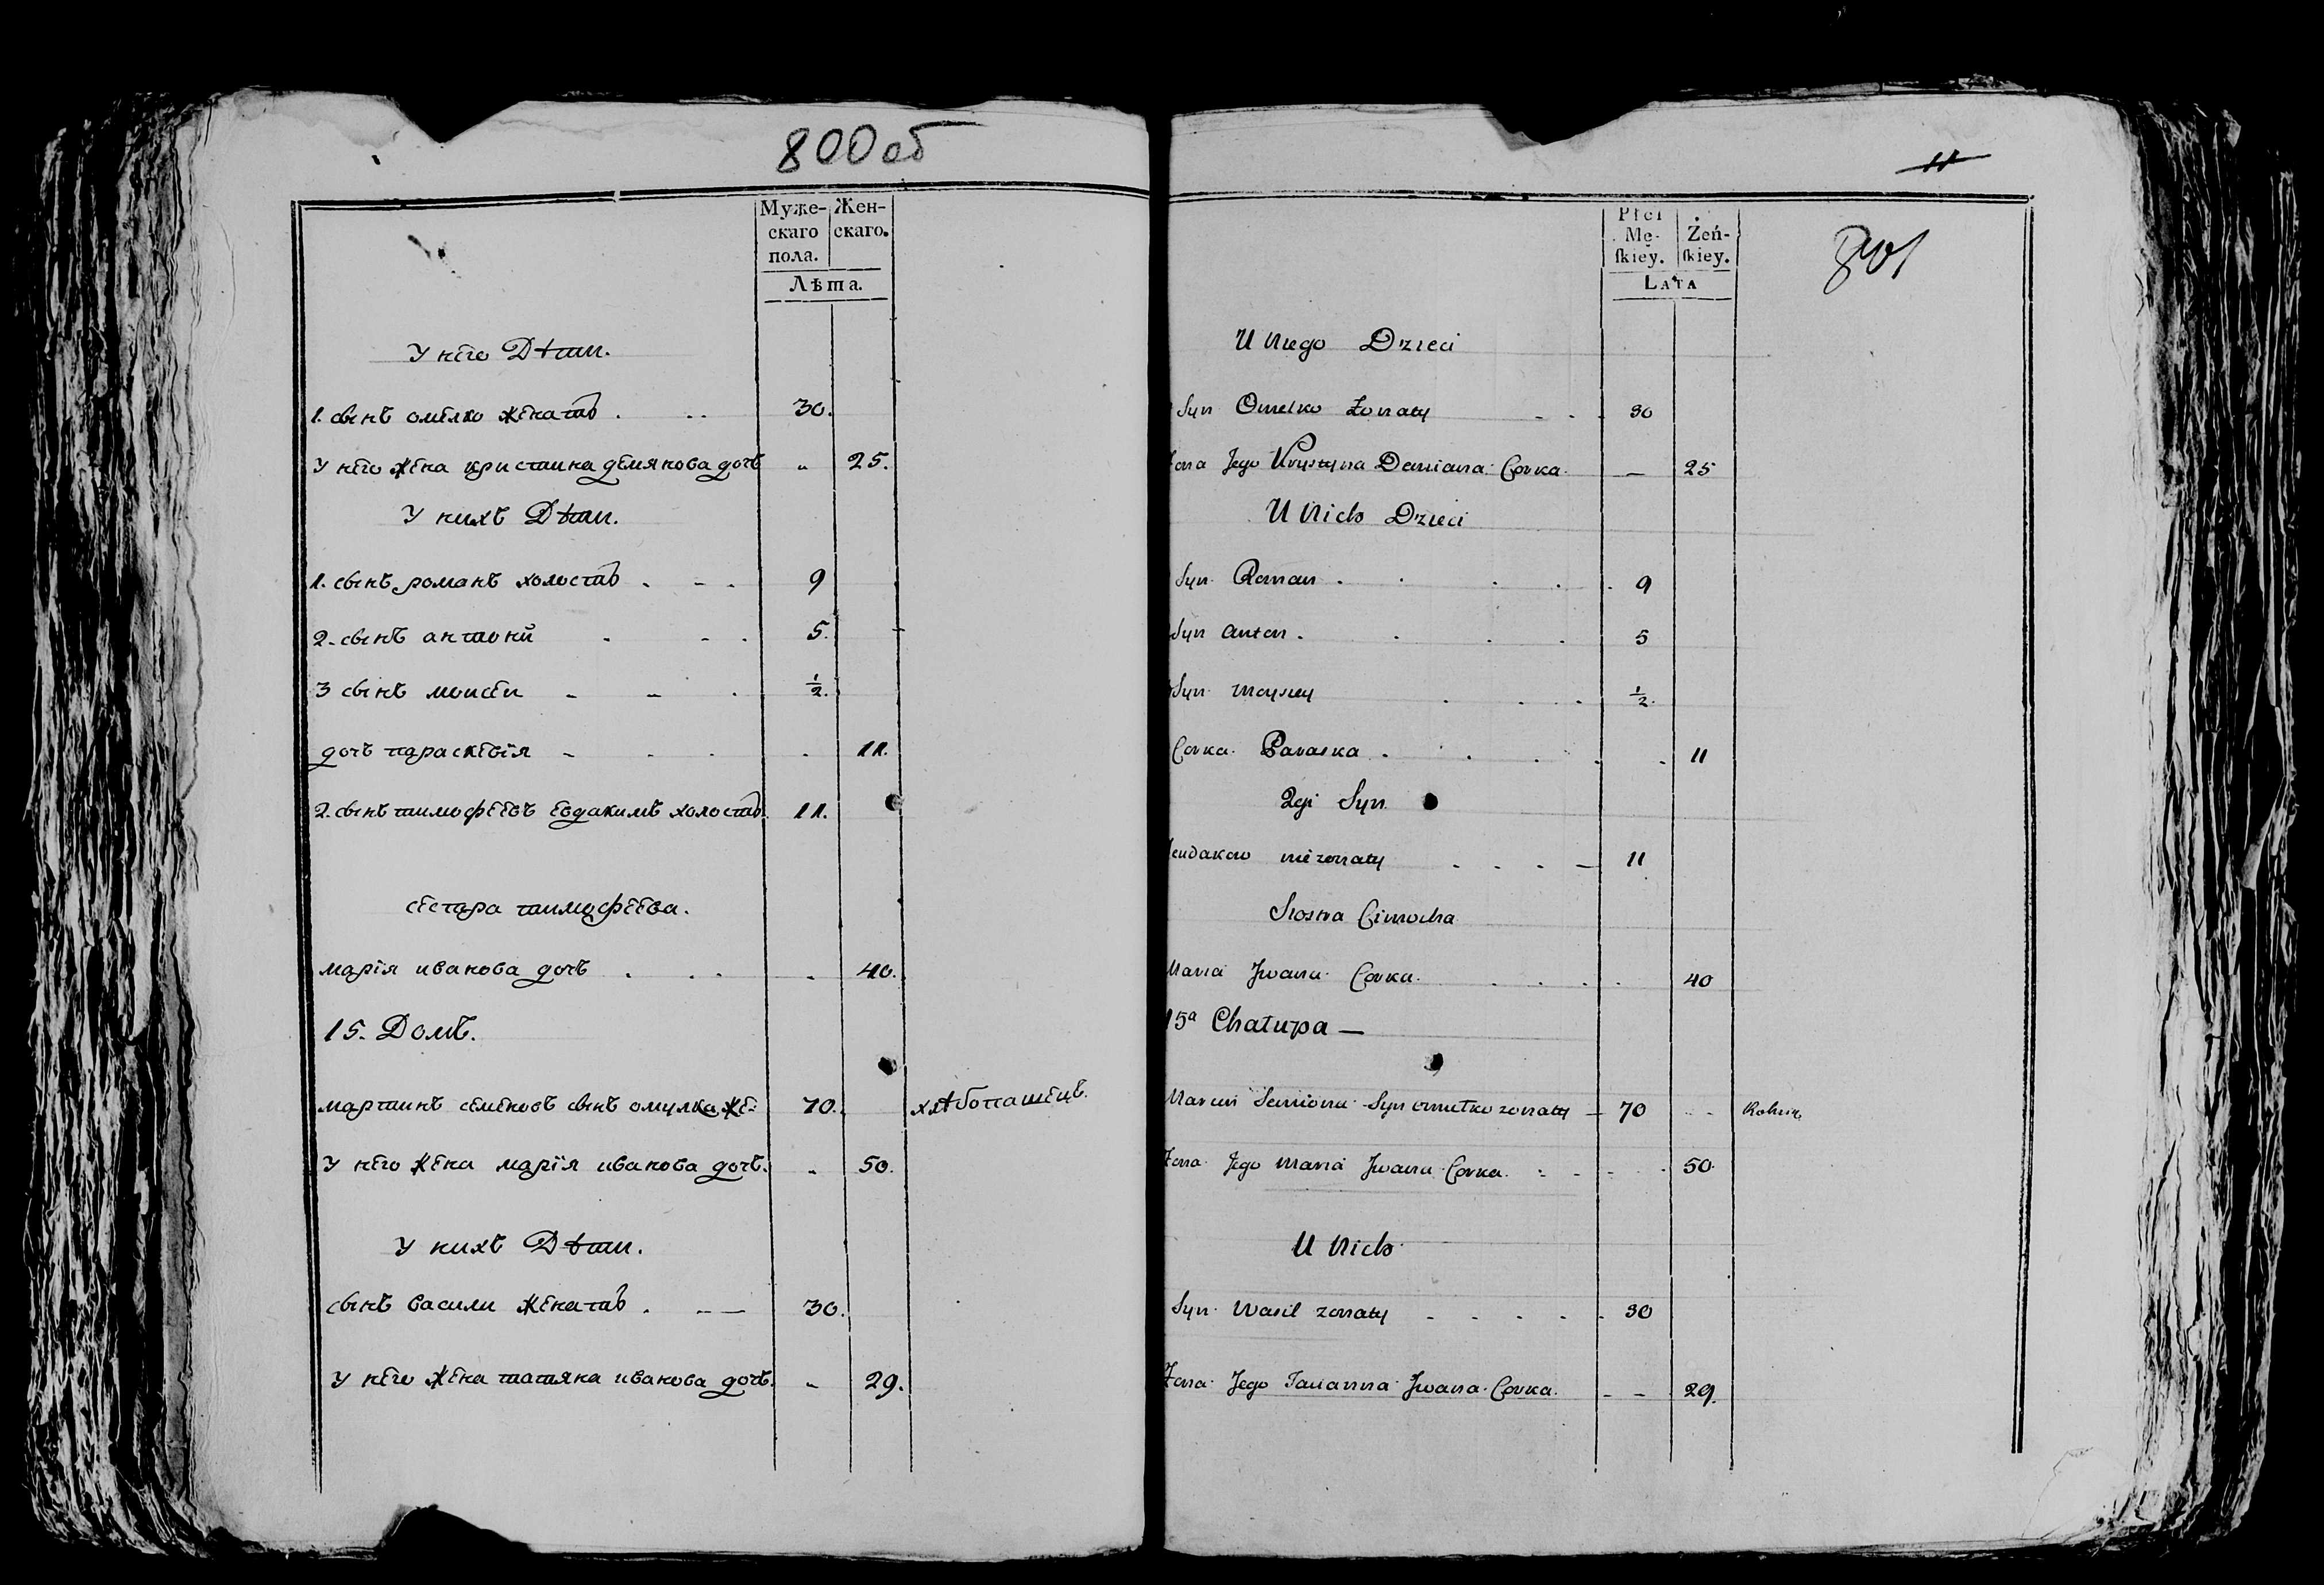 800 об
Муже- Жен-
скаго скаго.
пола.
Лѣта.
У него Дѣти.
1. сынъ омелко женатъ . .. 30.
У него жена кристина демянова дочь " 25.
У нихъ Дѣти.
1. сынъ романъ холостъ . - . 9
2. сынъ антоній . - . 5.
3 сынъ моисеи - - . ½.
дочь параскевія - . . . 11.
2. сынъ тимофеевъ евдакимъ холостъ. 11.
сестра тимофеева.
марія иванова дочь . . . - 40.
15. Домъ.
мартинъ семеновъ сынъ омулка же: 70. хлѣбопашецъ.
У него жена марія иванова дочь. " 50.
У нихъ Дѣти.
сынъ васили женатъ . - — 30.
У него жена татяна иванова дочь. " 29.
11
Płci
Mę- Żeń-
ſkiey. ſkiey.
LATA
801
U Niego Dzieci
Syn Omelko Żonaty - . . 30
Żona Jego Krystyna Demiana Corka — 25
U Nich Dzieci
Syn Roman . . . . . 9
Syn Anton . . . . 5
Syn Moysiey . . . ½.
Corka Paraska . . . . . 11
2gi Syn
Jeudakow nieżonaty . - . — 11
Siostra Cimocha
Maria Jwana Corka . . . . . 40
15a Chałupa —
Marcin Semiona Syn omulko zonaty — 70 - - Rolnik
Żona Jego Maria Jwana Corka . - - - . 50
U Nich
Syn Wasil zonaty - - . . . 30
Żona Jego Tacianna Jwana Corka. - - 29.